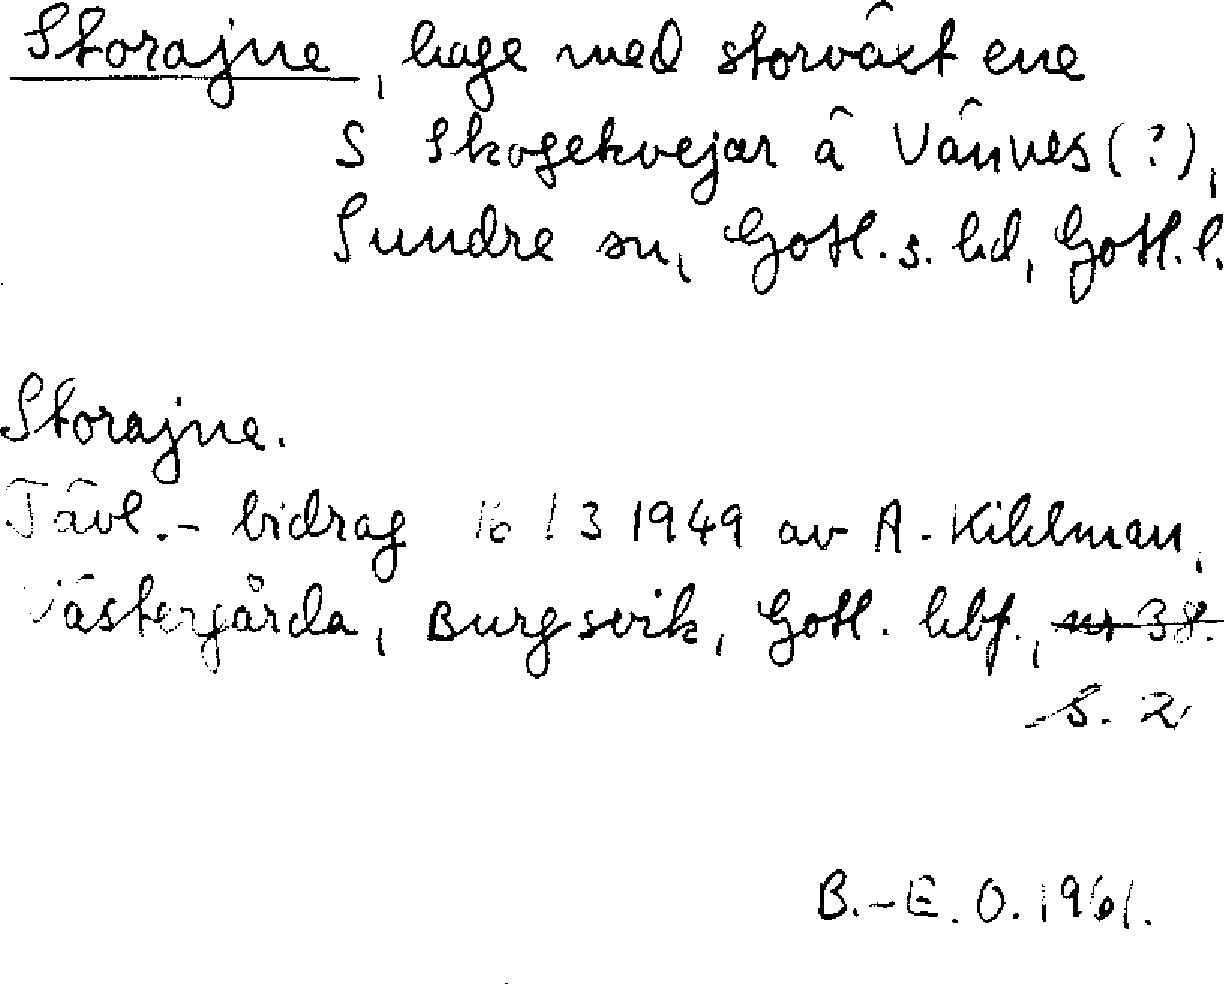 Storajne, hage med storväxt ene
S Skogekvejar å Vännes (?),
Sundre sn, Gotl. s. hd, Gotl. l.
Storajne.
Tävl.-bidrag 16/3 1949 av A. Kihlman,
Västergårda, Burgsvik, Gotl. hbf., nr 38.
S. 2
B.-E. O. 1961.